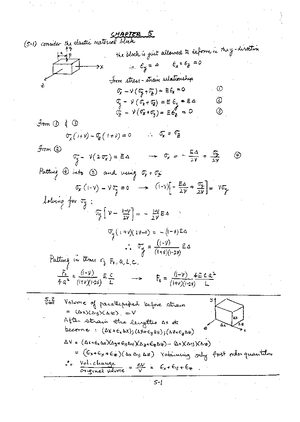 CHAPTER 5
(5-1) Consider the elastic material block
the block is just allowed to deform in the y-direction
∴ ε_y = Δ ε_x = ε_z = 0
From stress-strain relationship
σ_x - ν(σ_y+σ_z) = Eε_x = 0 ①
σ_y - ν(σ_x+σ_z) = Eε_y = EΔ ②
σ_z - ν(σ_x+σ_y) = Eε_z = 0 ③
From ① & ③
σ_x(1+ν) - σ_z(1+ν) = 0 ∴ σ_x = σ_z
From ②
σ_y - ν(2σ_x) = EΔ → σ_x = - EΔ/2ν + σ_y/2ν ④
Putting ④ into ③ and using σ_x = σ_z
σ_x(1-ν) - νσ_y = 0 → (1-ν)[- EΔ/2ν + σ_y/2ν] = νσ_y
Solving for σ_y:
Putting in terms of P_0, a, L, C.
5-2 Volume of parallelpiped before strain
= (Δx)(Δy)(Δz) = V
After strain the lengths Δx etc
become: (Δx+ε_xΔx); (Δy+ε_yΔy); (Δz+ε_zΔz)
ΔV = (Δx+ε_xΔx)(Δy+ε_yΔy)(Δz+ε_zΔz) - (Δx)(Δy)(Δz)
= (ε_x+ε_y+ε_z)(Δx Δy Δz) retaining only first order quantities
∴ Vol. change / original volume = ΔV/V = ε_x + ε_y + ε_z.
5-1